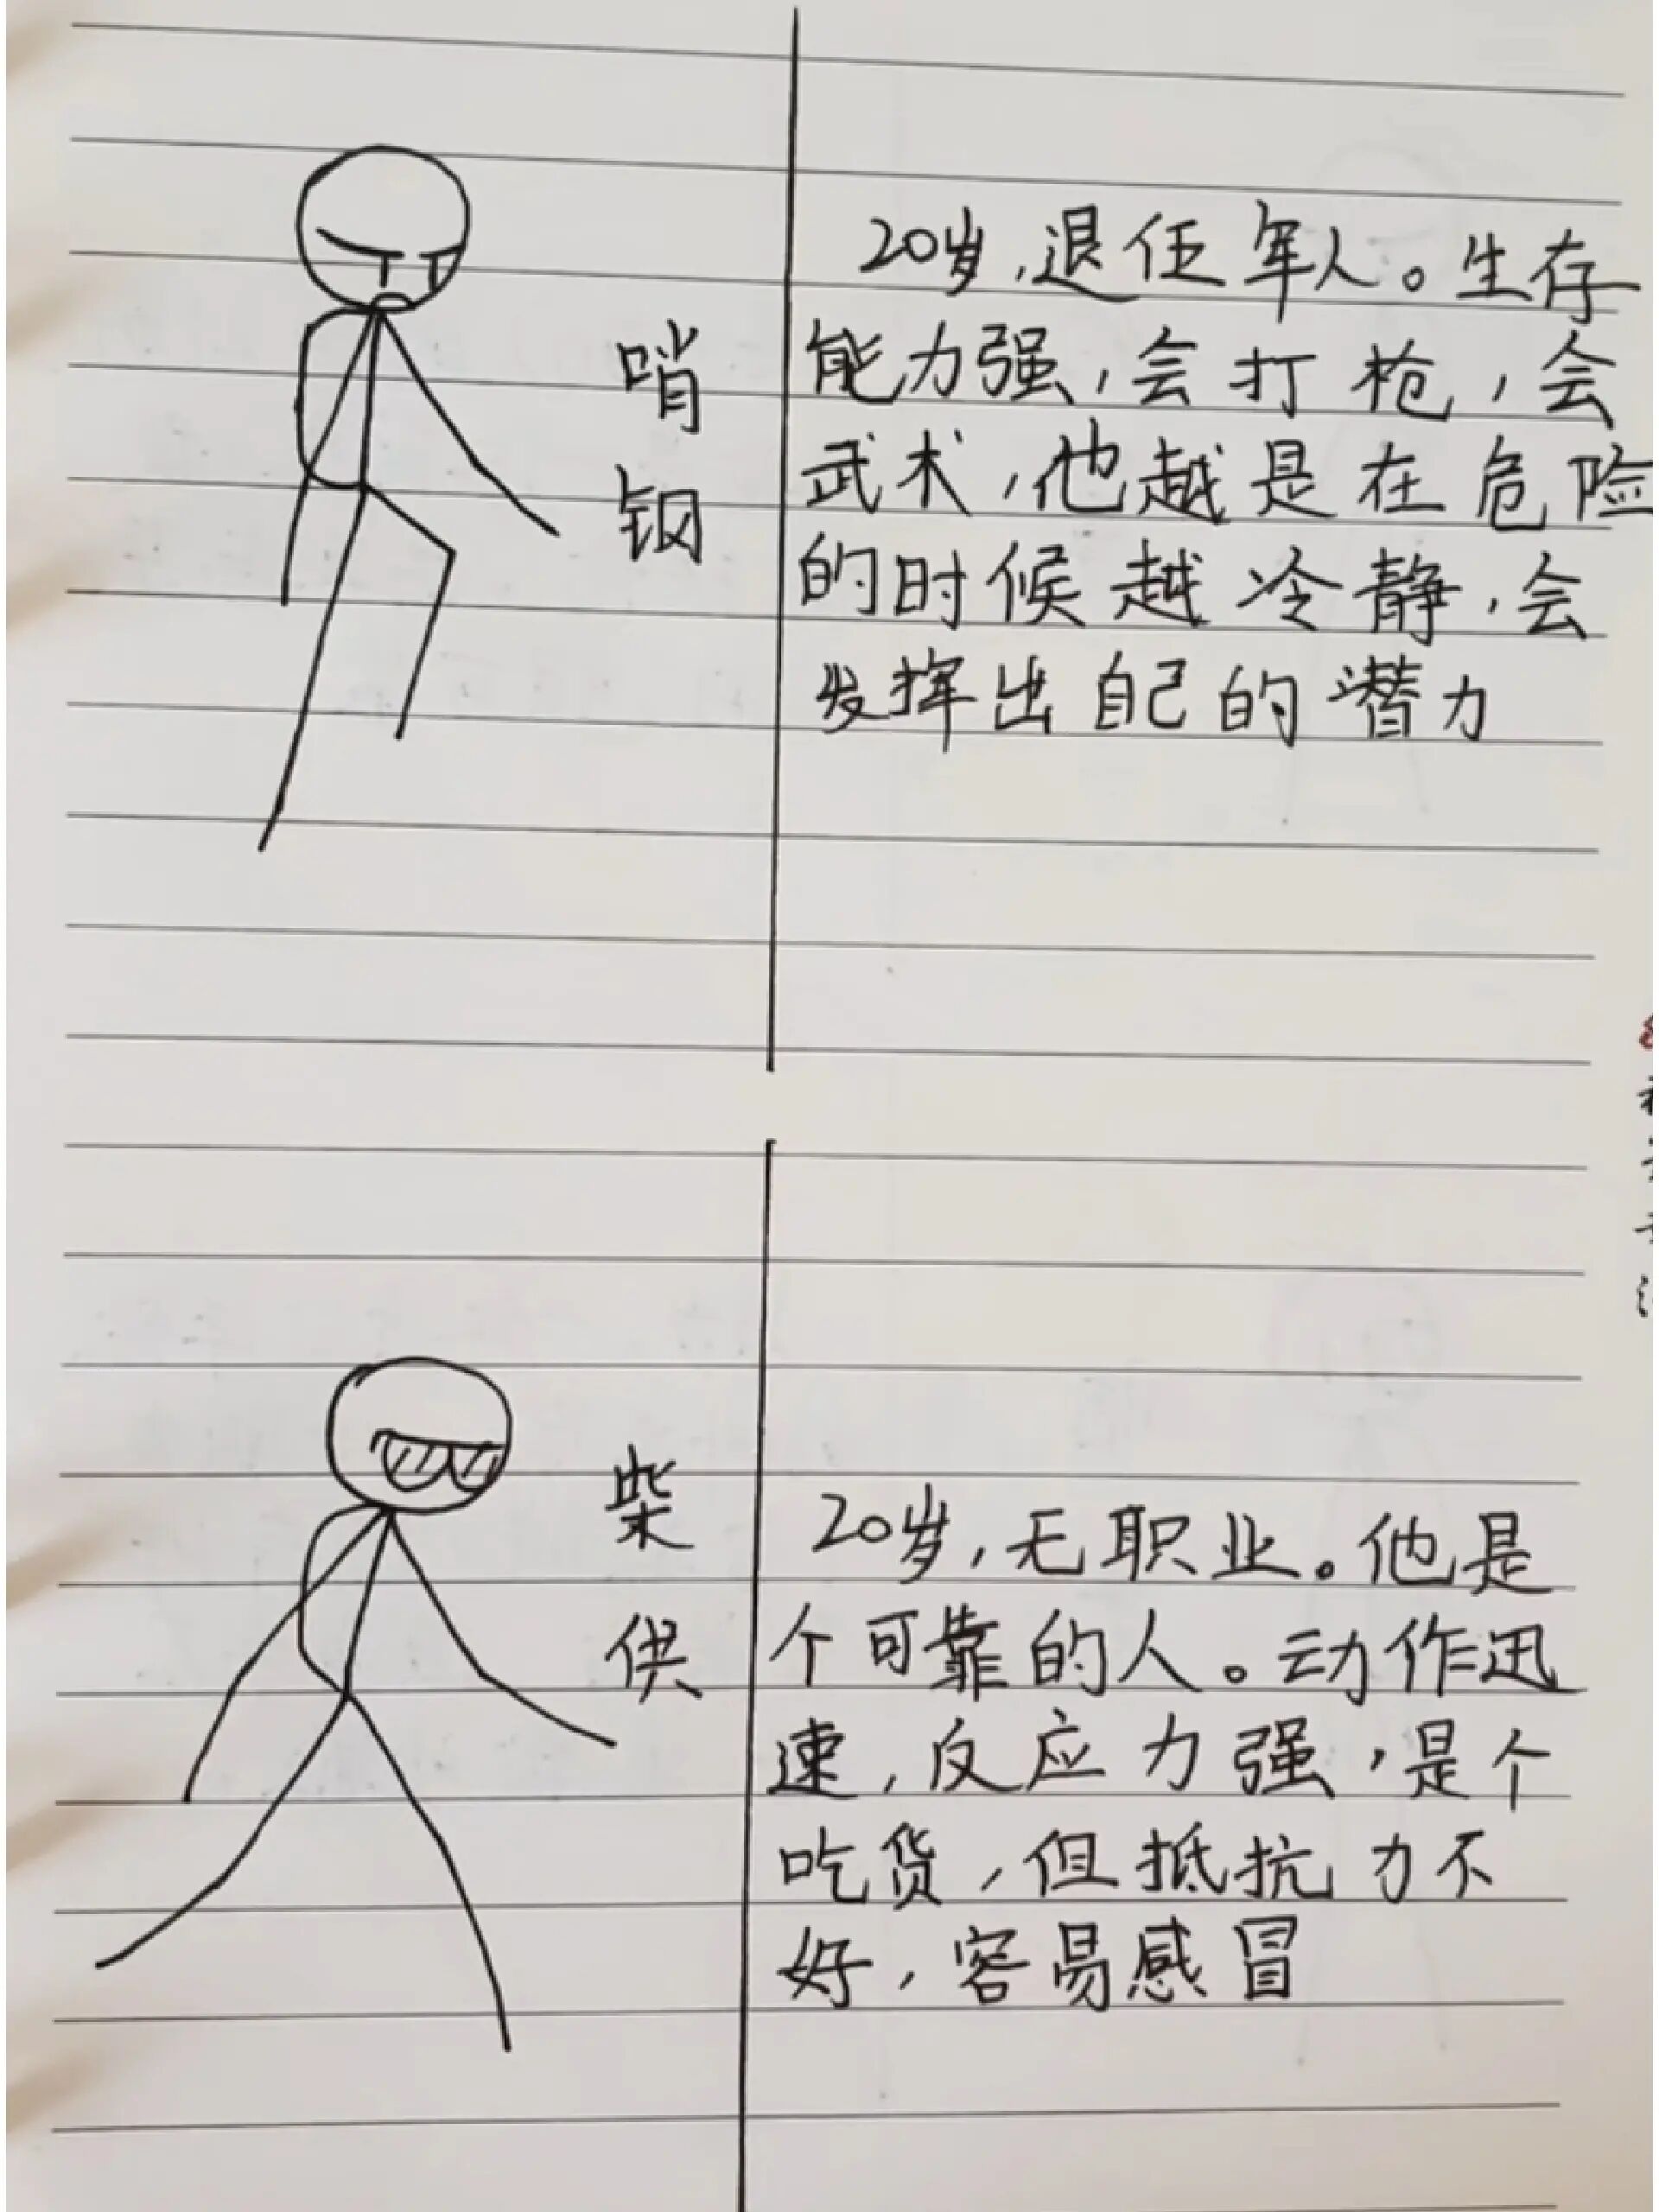 哨
钢
20岁,退任军人。生存
能力强,会打枪,会
武术,他越是在危险
的时候越冷静,会
发挥出自己的潜力
柴
供
20岁,无职业。他是
个可靠的人。动作迅
速,反应力强,是个
吃货,但抵抗力不
好,容易感冒